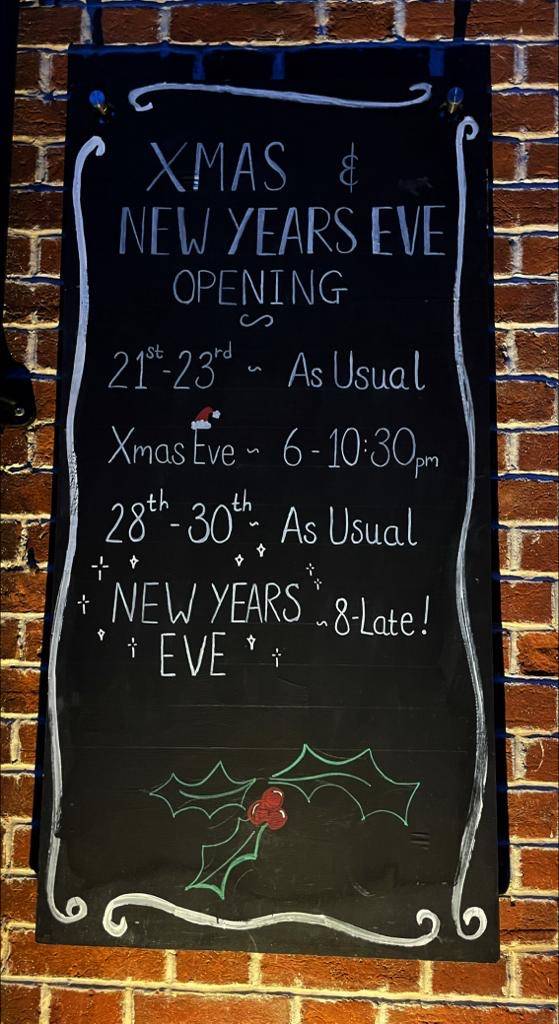 XMAS &
NEW YEARS EVE
OPENING
21st-23rd ~ As Usual
Xmas Eve ~ 6-10:30pm
28th-30th ~ As Usual
NEW YEARS
EVE ~ 8-Late!